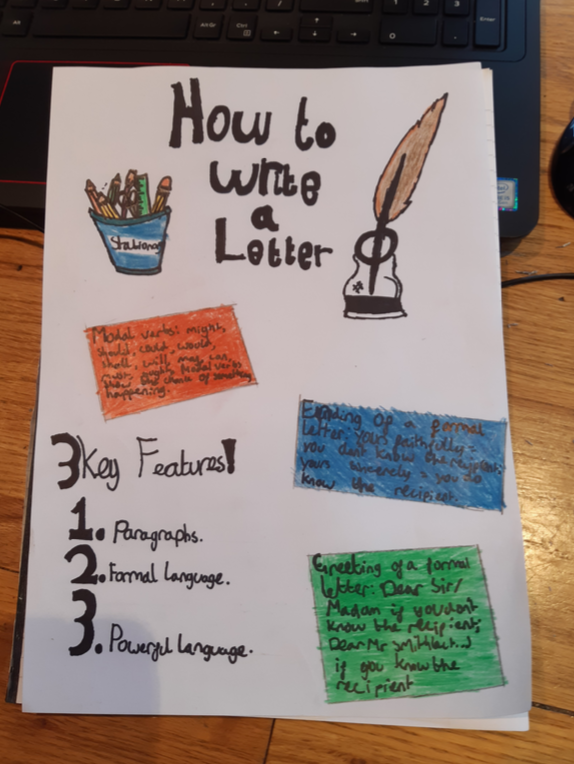 How to
write
a
Letter
Stationary
Modal verbs: might,
should, could, would,
shall, will, may, can,
must, ought. Modal verbs
show the chance of something
happening.
Ending of a formal
letter: yours faithfully =
you dont know the recipient;
yours sincerely = you do
know the recipient.
3 Key Features!
1. Paragraphs.
2. Formal Language.
3. Powerful Language.
Greeting of a formal
letter: Dear Sir/
Madam if you dont
know the recipient;
Dear Mr Smith
if you know the
recipient